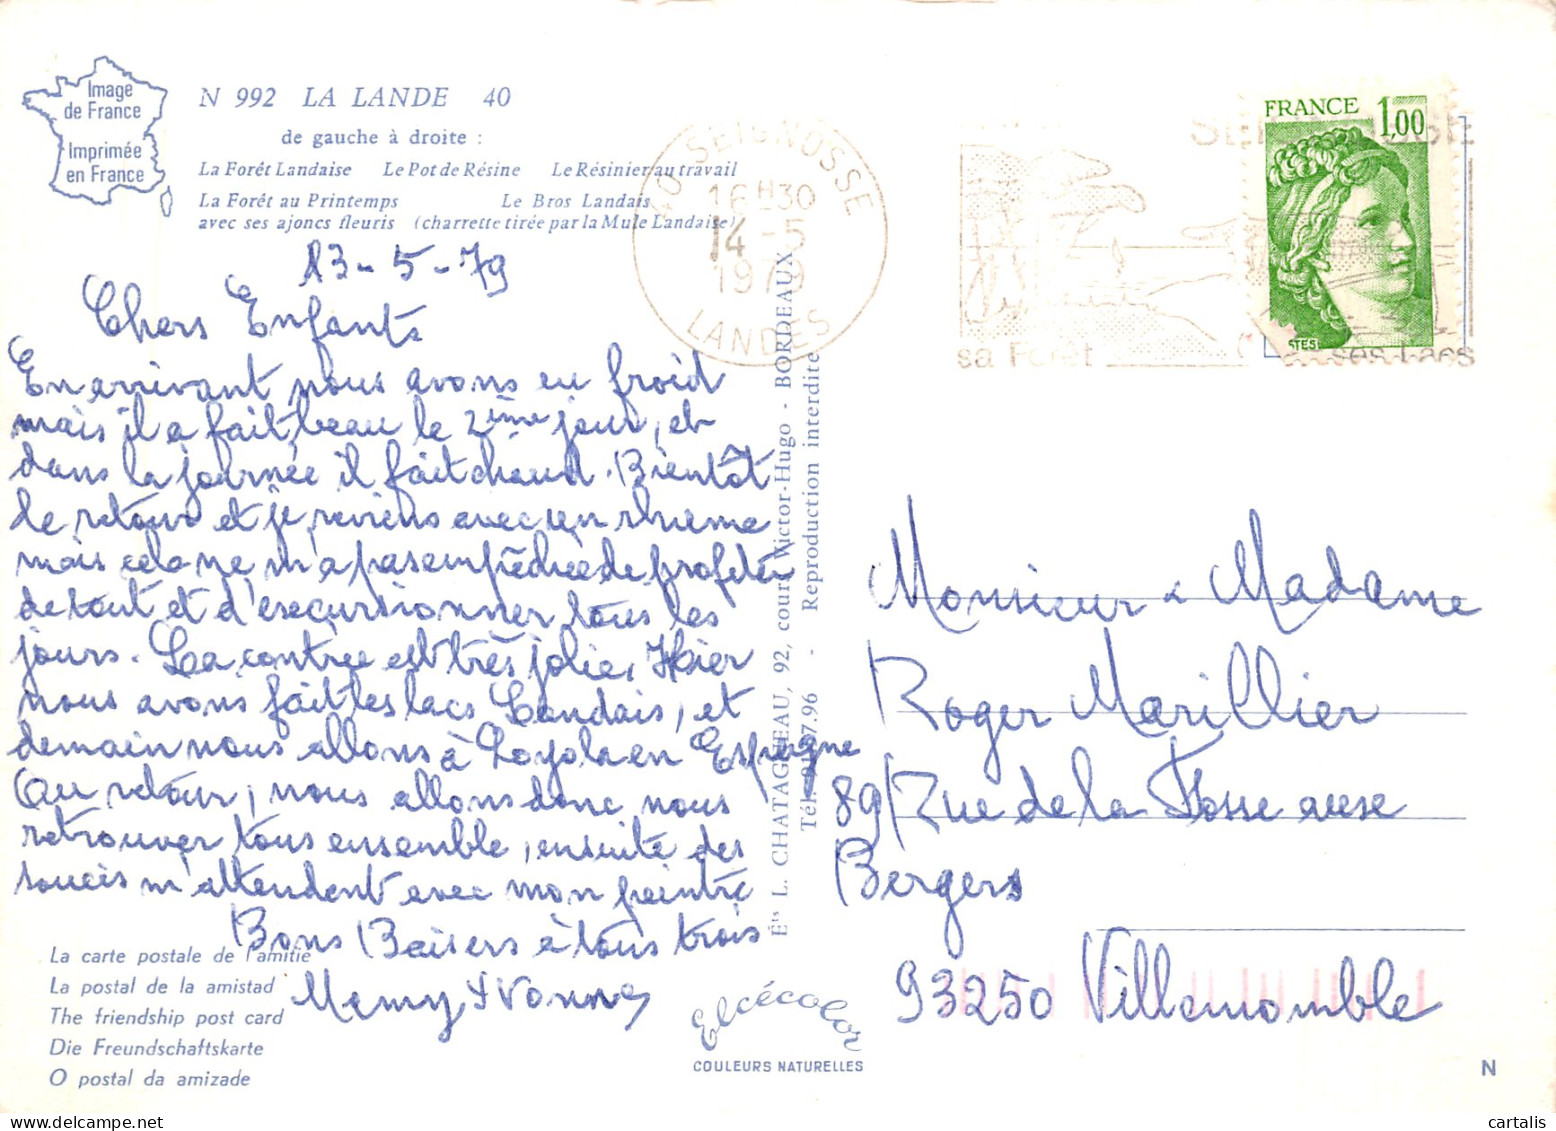 Image
de France
Imprimée
en France
N 992 LA LANDE 40
de gauche à droite :
La Forêt Landaise Le Pot de Résine Le Résinier au travail
La Forêt au Printemps Le Bros Landais
avec ses ajoncs fleuris (charrette tirée par la Mule Landaise)
SEIGNOSSE
16H30
14-5
1979
LANDES
sa Forêt ses Lacs
FRANCE 1,00
13-5-79
Chers Enfants
En arrivant nous avons eu froid
mais il a fait beau le 2ème jour, et
dans la journée il fait chaud. Bientôt
le retour et je reviens avec un rhume
mais cela ne m'a pas empêchée de profiter
de tout et d'excursionner tous les
jours. La contrée est très jolie, Hier
nous avons fait les lacs Landais, et
demain nous allons à Loyola en Espagne
Au retour, nous allons donc nous
retrouver tous ensemble, ensuite des
soucis m'attendent avec mon peintre
Bons Baisers à tous trois
Memy Yvonne
Éts L. CHATAGNEAU, 92, cours Victor-Hugo - BORDEAUX
Reproduction interdite
Monsieur & Madame
Roger Marillier
89 Rue de la Fosse aux
Bergers
93250 Villemomble
La carte postale de l'amitié
La postal de la amistad
The friendship post card
Die Freundschaftskarte
O postal da amizade
Elcécolor
COULEURS NATURELLES
N
cartalis